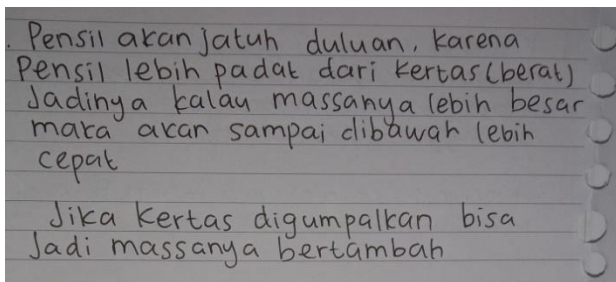 . Pensil akan jatuh duluan, karena
Pensil lebih padat dari kertas (berat)
Jadinya kalau massanya lebih besar
maka akan sampai dibawah lebih
cepat
Jika kertas digumpalkan bisa
Jadi massanya bertambah